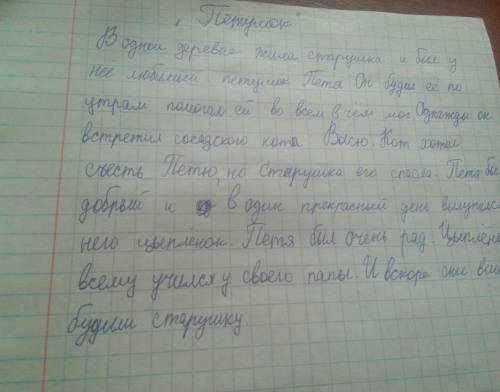 „Петушок“
В одной деревне жила старушка и был у
неё любимый петушок Петя Он будил её по
утрам помогал ей во всём в чём мог Однажды он
встретил соседского кота Васю. Кот хотел
съесть Петю, но старушка его спасла. Петя был
добрый и в один прекрасный день вылупился
него цыплёнок. Петя был очень рад. Цыплёнок
всему учился у своего папы. И вскоре они
будили старушку